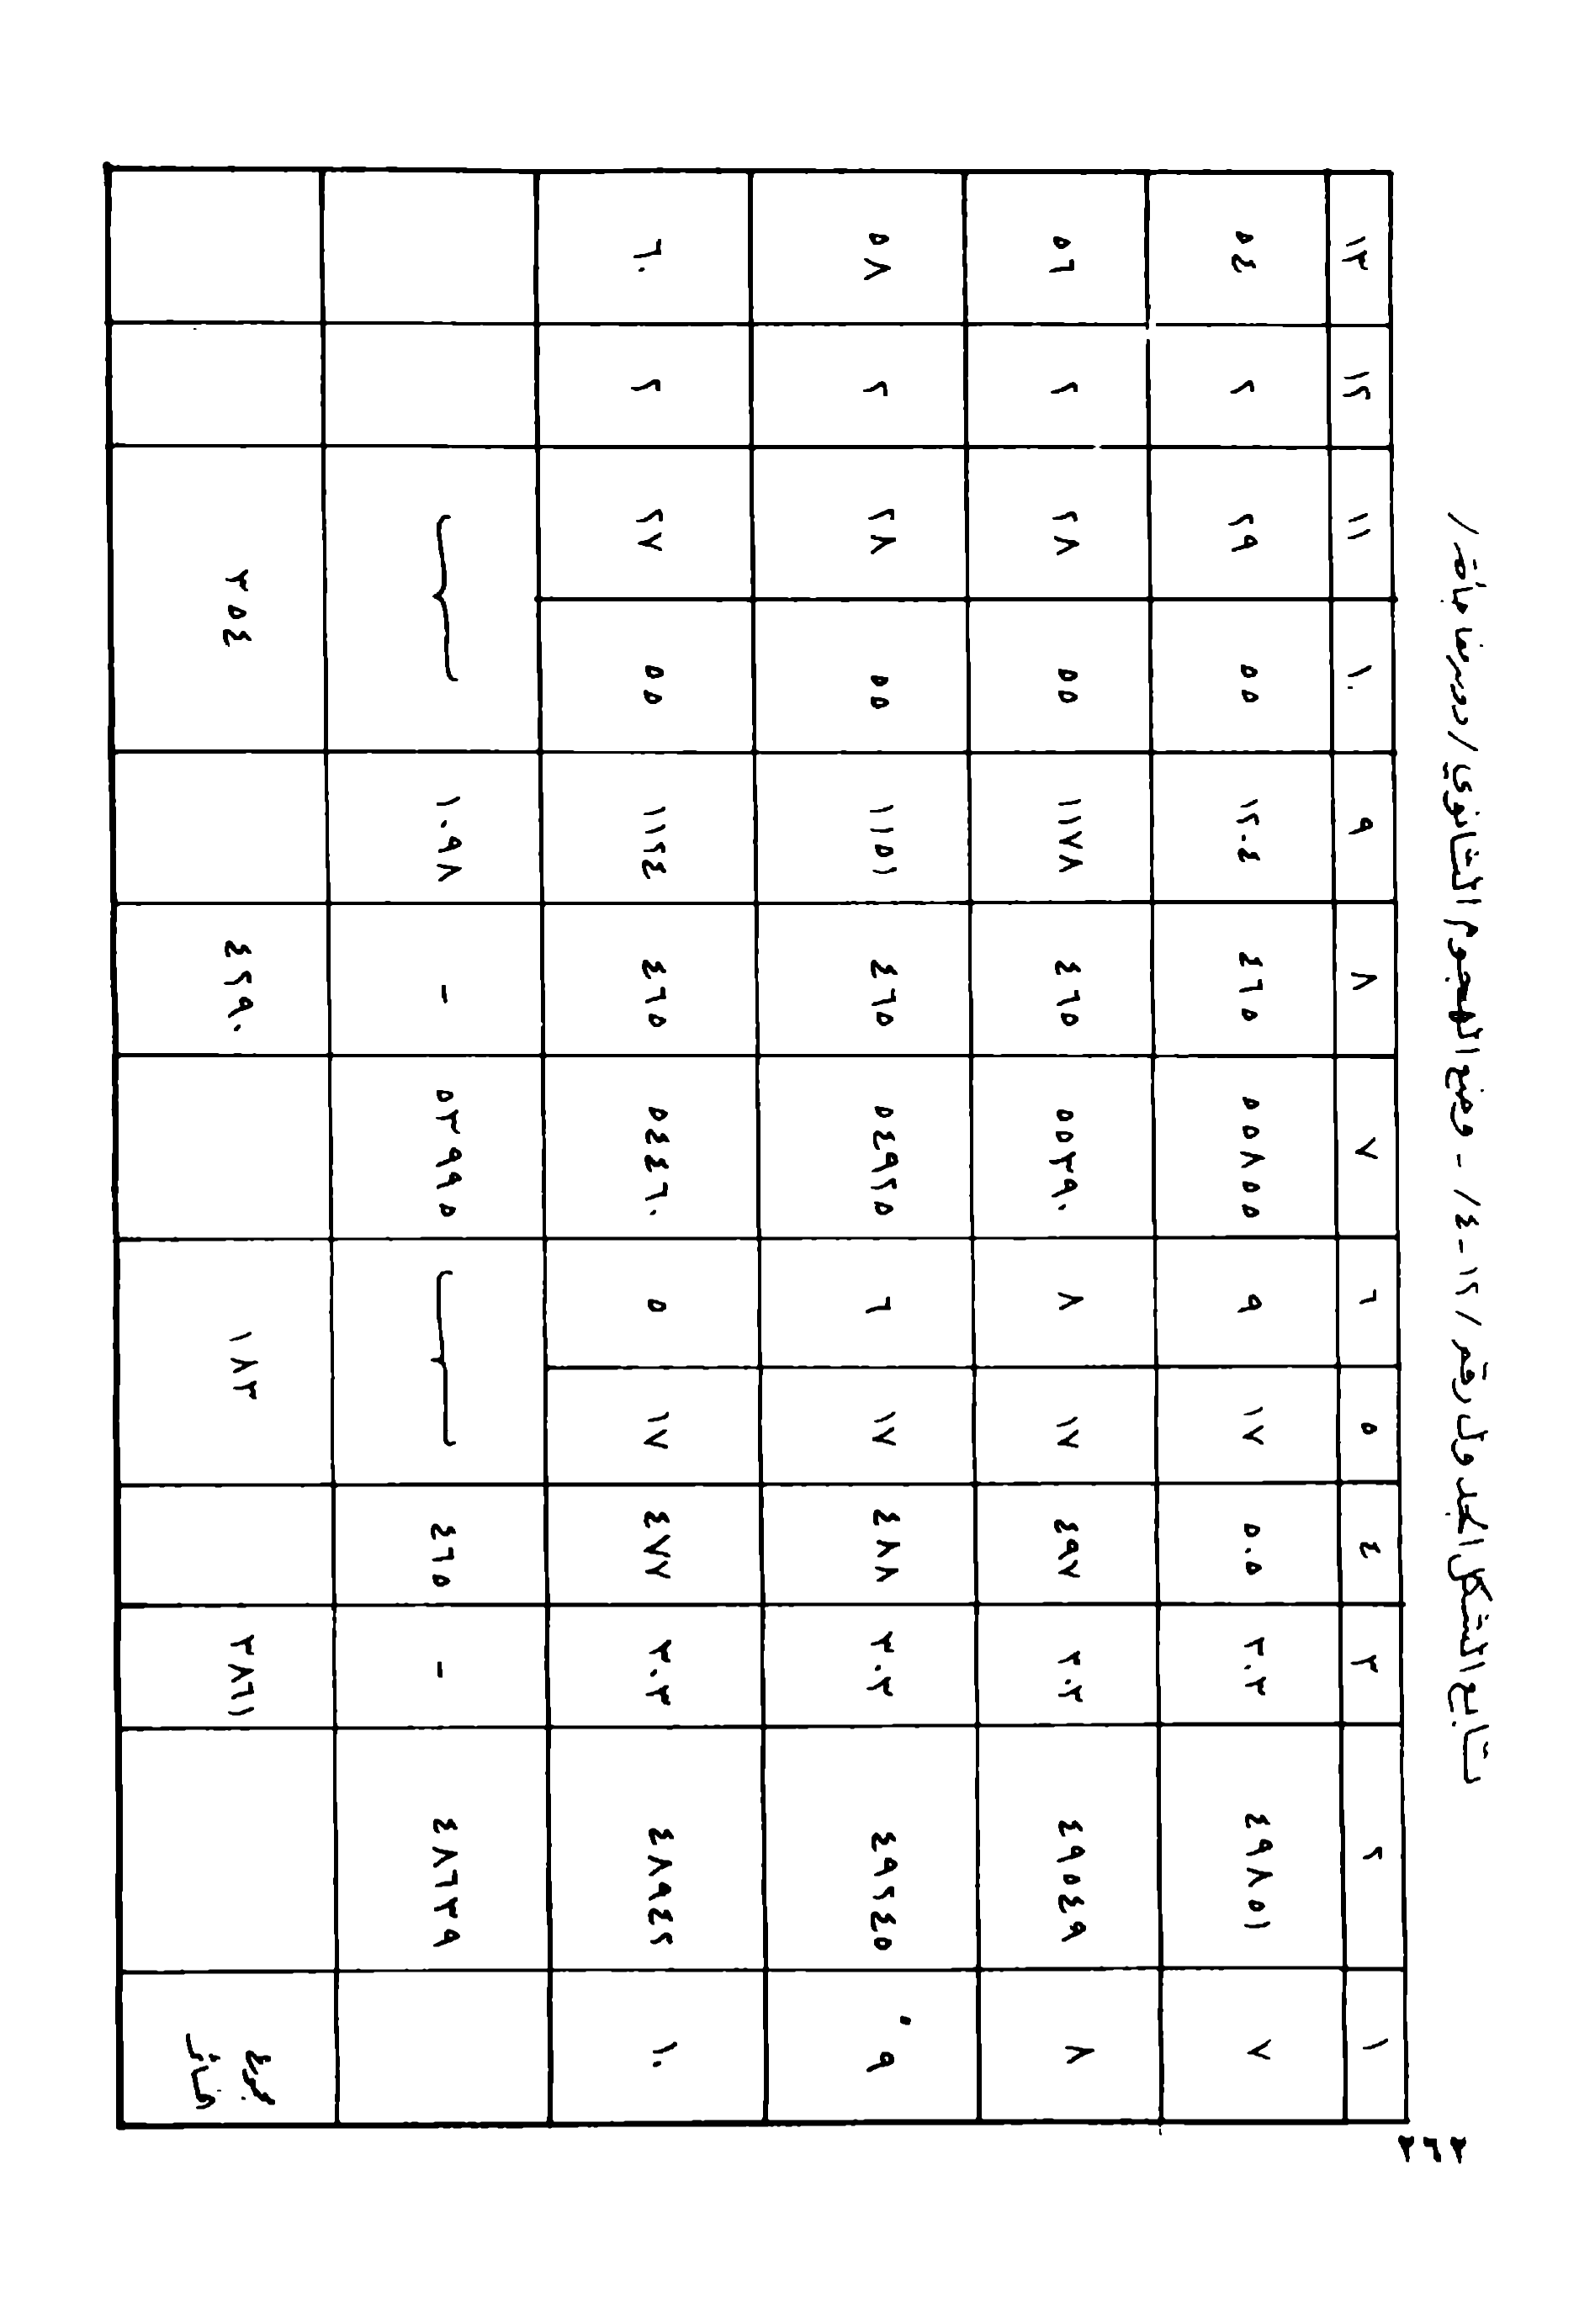 ٢٦٢
تابع الشكل الجدول رقم /١٢-٤/ - وضع الهجوم الثانوي / دون مفاجأة /
١ ٢ ٣ ٤ ٥ ٦ ٧ ٨ ٩ ١٠ ١١ ١٢ ١٣
٧ ٤٩٨٥١ ٣٠٣ ٥٠٥ ١٧ ٩ ٥٥٨٥٥ ٤٦٥ ١٢٠٤ ٥٥ ٢٩ ٢ ٥٤
٨ ٤٩٥٤٩ ٣٠٣ ٤٩٧ ١٧ ٨ ٥٥٣٩٠ ٤٦٥ ١١٧٨ ٥٥ ٢٨ ٢ ٥٦
٩ ٤٩٢٤٥ ٣٠٣ ٤٨٨ ١٧ ٦ ٥٤٩٢٥ ٤٦٥ ١١٥١ ٥٥ ٢٨ ٢ ٥٨
١٠ ٤٨٩٤٢ ٣٠٣ ٤٧٧ ١٧ ٥ ٥٤٤٦٠ ٤٦٥ ١١٢٤ ٥٥ ٢٧ ٢ ٦٠
٤٨٦٣٩ - ٤٦٥ ٥٣٩٩٥ - ١٠٩٨
مجموع ٣٨٦١ ١٨٣ ٤٢٩٠ ٣٥٤
خسائر